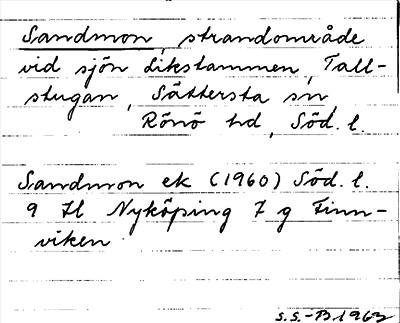 Sandmon, strandområde
vid sjön Likstammen, Tall-
stugan, Sättersta sn,
Rönö hd, Söd. l.
Sandmon ek (1960) Söd. l.
9 H Nyköping 7 g Finn-
viken
S.S.-B. 1963